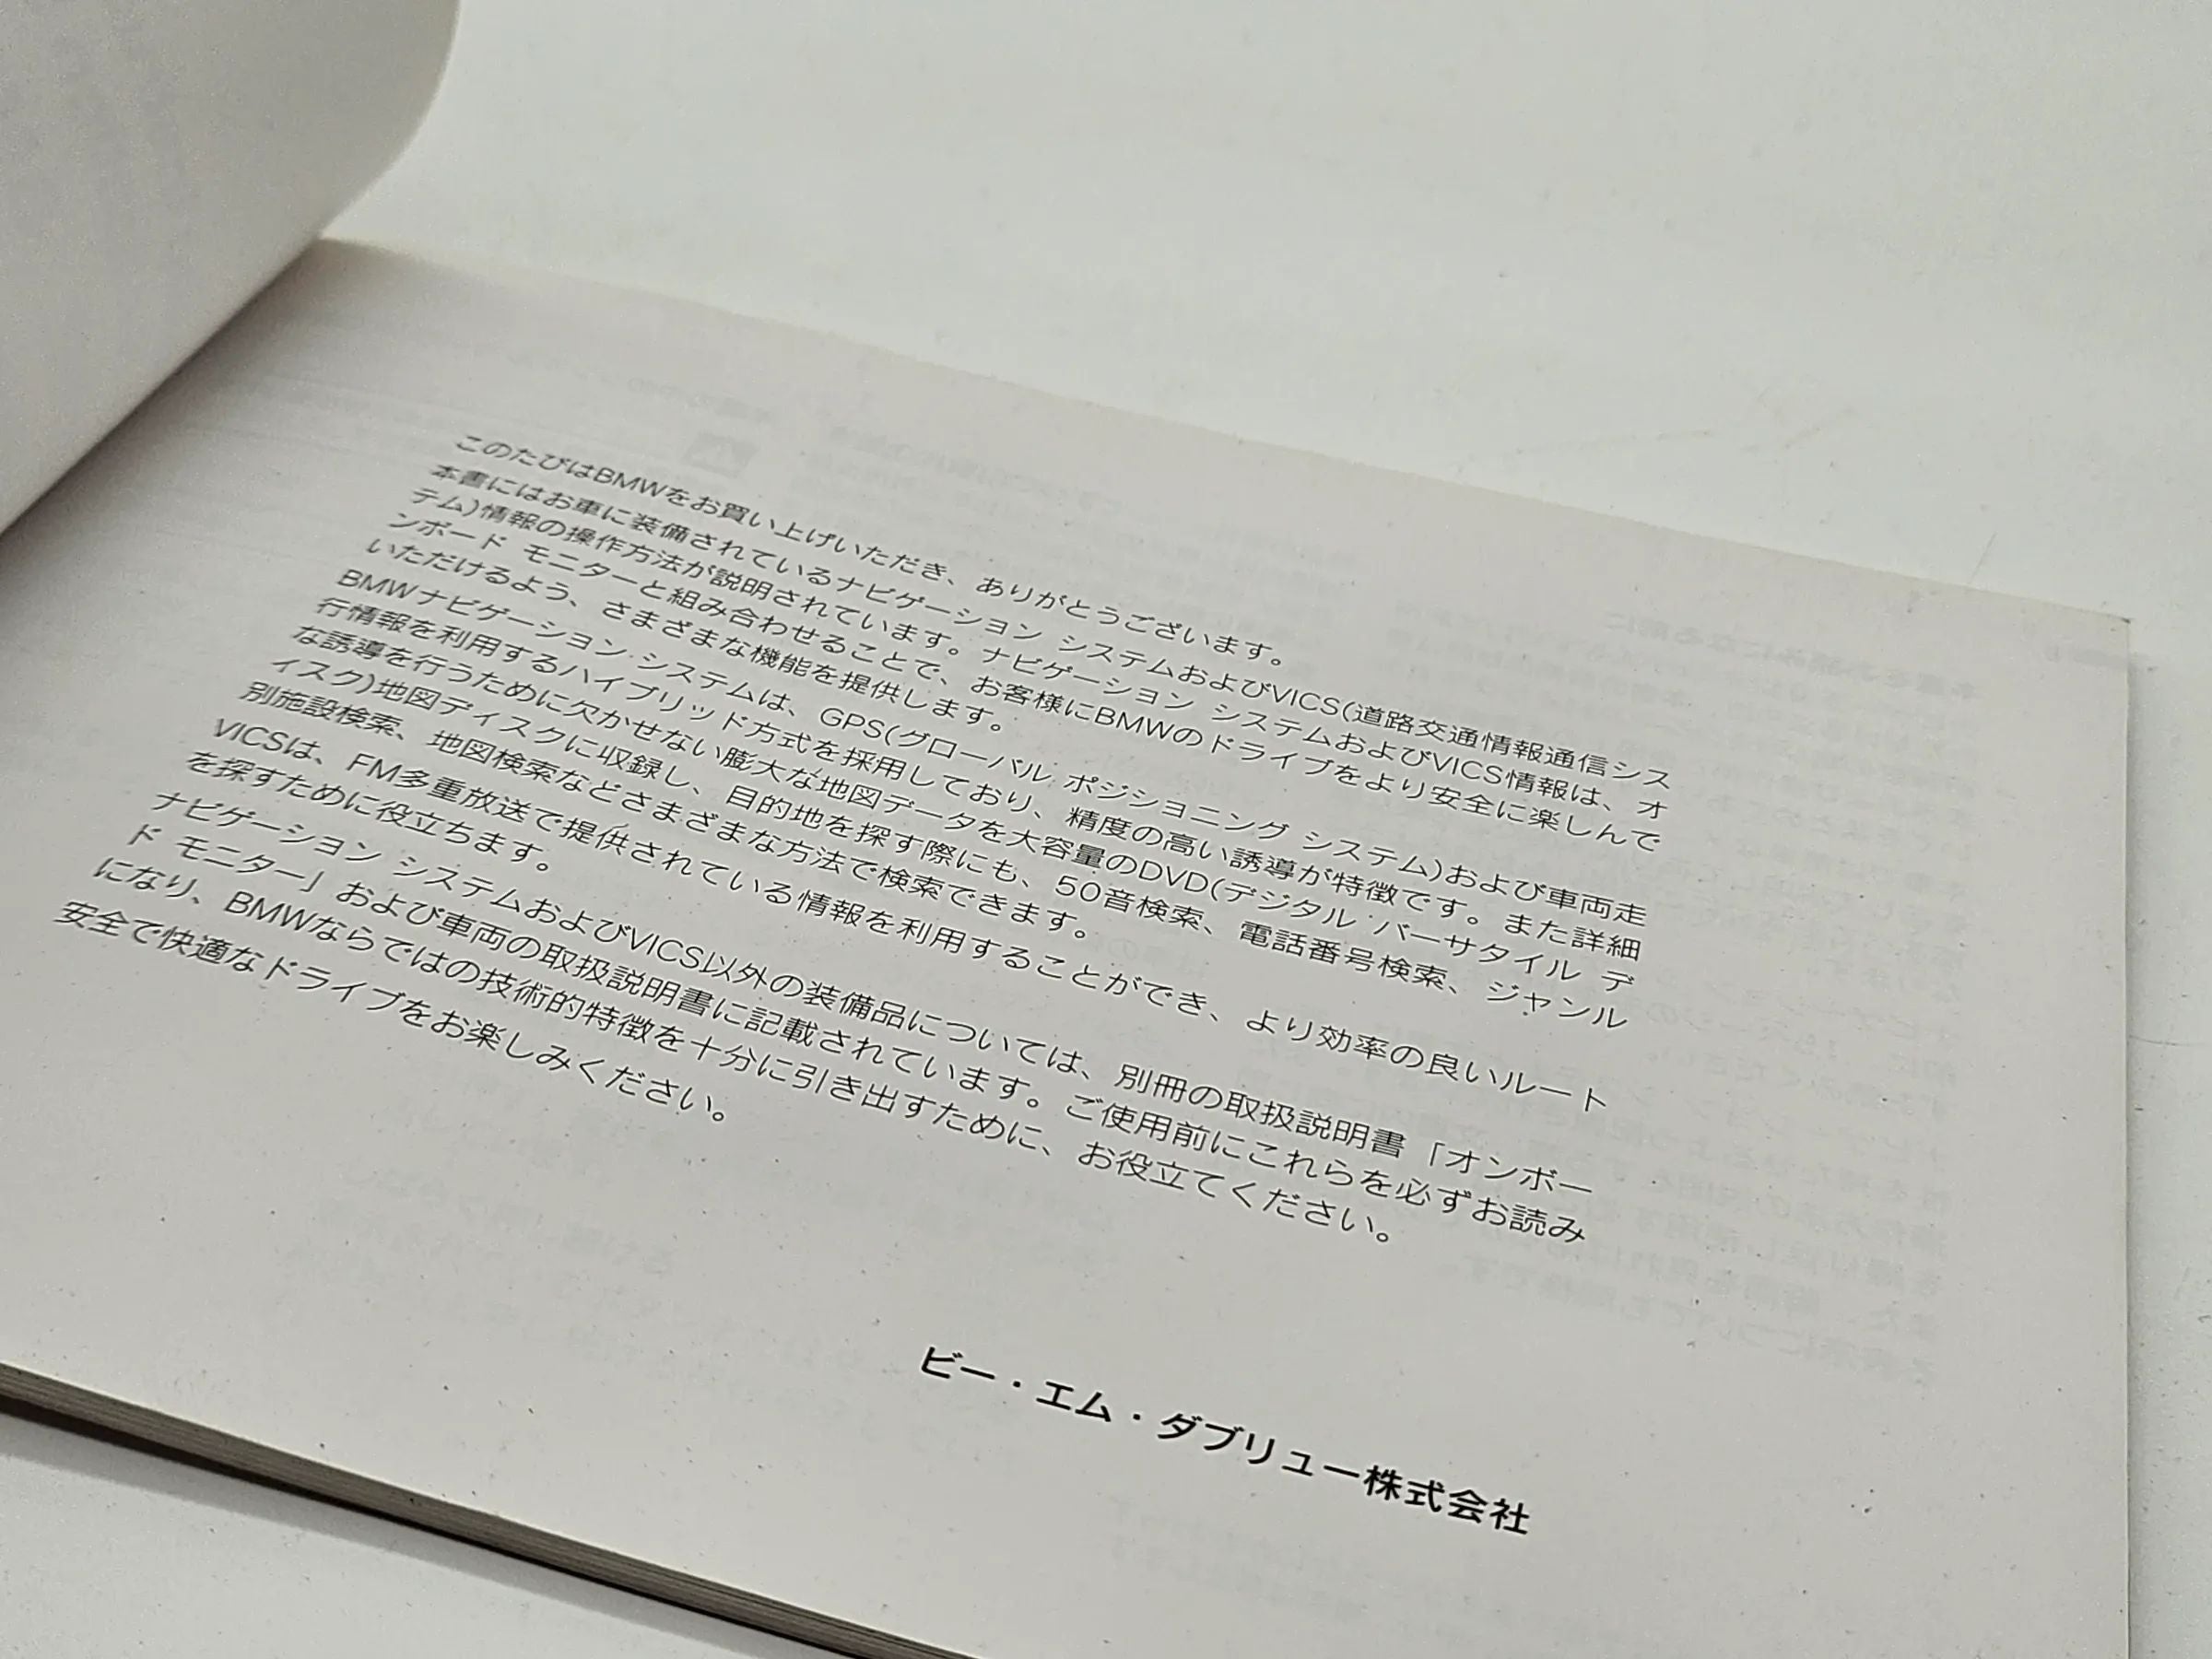 このたびはBMWをお買い上げいただき、ありがとうございます。
本書にはお車に装備されているナビゲーション システムおよびVICS(道路交通情報通信シス
テム)情報の操作方法が説明されています。ナビゲーション システムおよびVICS情報は、オ
ンボード モニターと組み合わせることで、お客様にBMWのドライブをより安全に楽しんで
いただけるよう、さまざまな機能を提供します。
BMWナビゲーション システムは、GPS(グローバル ポジショニング システム)および車両走
行情報を利用するハイブリッド方式を採用しており、精度の高い誘導が特徴です。また詳細
な誘導を行うために欠かせない膨大な地図データを大容量のDVD(デジタル バーサタイル デ
ィスク)地図ディスクに収録し、目的地を探す際にも、50音検索、電話番号検索、ジャンル
別施設検索、地図検索などさまざまな方法で検索できます。
VICSは、FM多重放送で提供されている情報を利用することができ、より効率の良いルート
を探すために役立ちます。
ナビゲーション システムおよびVICS以外の装備品については、別冊の取扱説明書「オンボー
ド モニター」および車両の取扱説明書に記載されています。ご使用前にこれらを必ずお読み
になり、BMWならではの技術的特徴を十分に引き出すために、お役立てください。
安全で快適なドライブをお楽しみください。
ビー・エム・ダブリュー株式会社